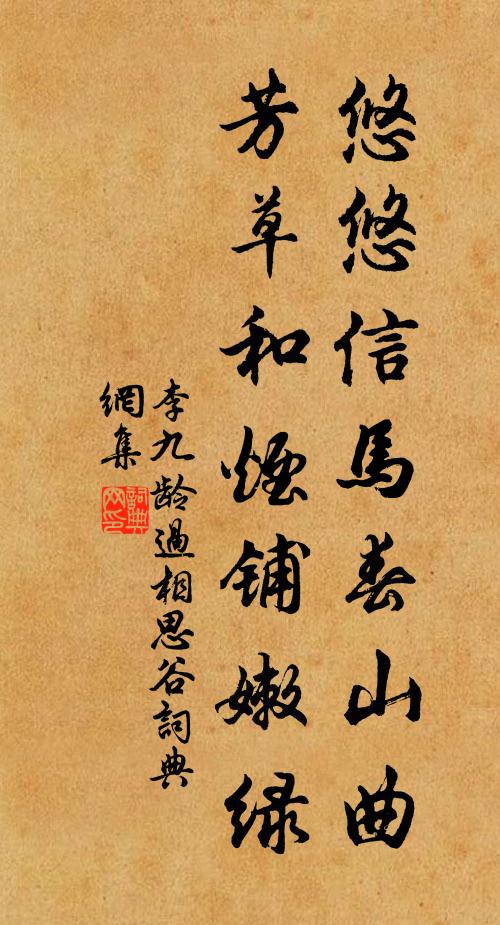 悠悠信馬春山曲
芳草和煙鋪嫩緑
李九龄過相思谷詞典
網集
詞典
网印